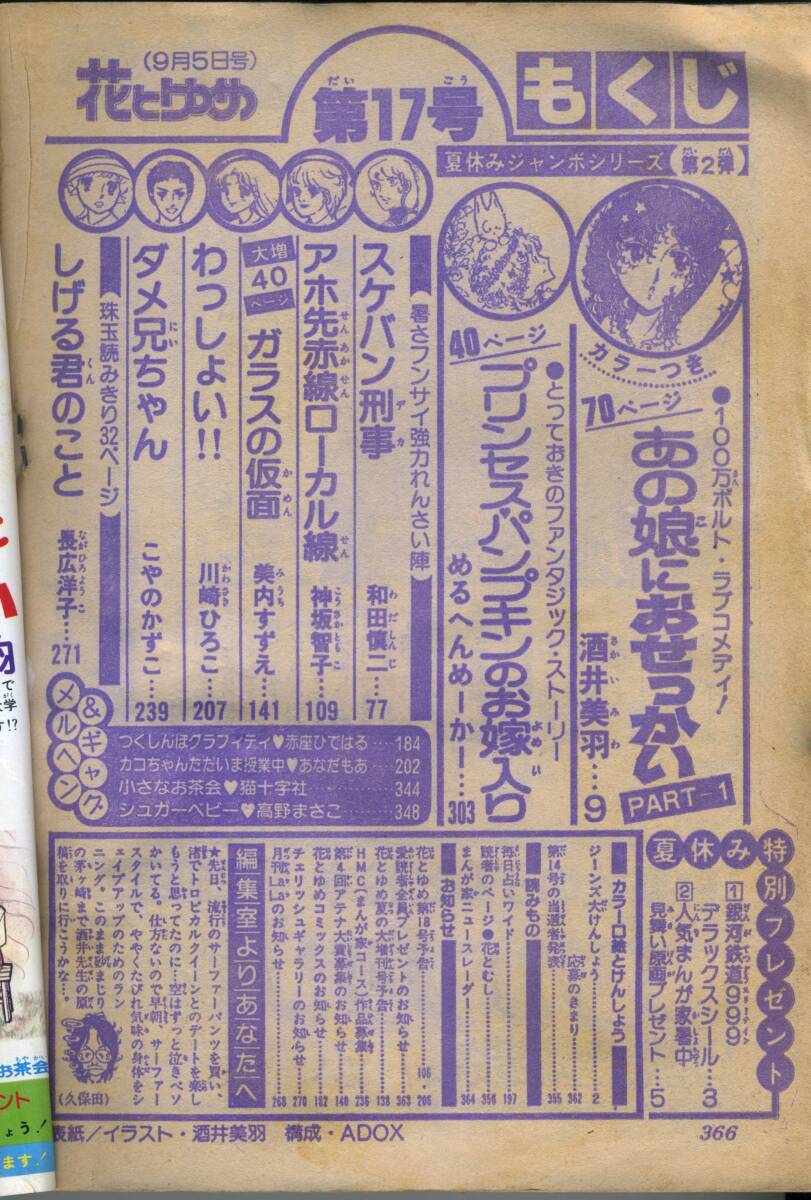 花とゆめ
(9月5日号)
第17号
もくじ
夏休みジャンボシリーズ
第2弾
カラーつき
70ページ
●100万ボルト・ラブコメディ!
あの娘におせっかい
PART-1
酒井美羽…9
40ページ
●とっておきのファンタジック・ストーリー
プリンセスパンプキンのお嫁入り
めるへんめーかー…303
暑さフンサイ強力れんさい陣
スケバン刑事
和田慎二…77
アホ先赤線ローカル線
神坂智子…109
大増40ページ
ガラスの仮面
美内すずえ…141
わっしょい!!
川崎ひろこ…207
ダメ兄ちゃん
こやのかずこ…239
珠玉読みきり32ページ
しげる君のこと
長広洋子…271
メルヘン&ギャグ
つくしんぼグラフィティ♥赤座ひではる…184
カコちゃんただいま授業中♥あなだもあ…202
小さなお茶会♥猫十字社…344
シュガーベビー♥高野まさこ…348
夏休み特別プレゼント
1 銀河鉄道999
デラックスシール…3
2 人気まんが家暑中
見舞い原画プレゼント…5
カラー口絵とけんしょう
ジーンズ大けんしょう…2
応募のきまり…362
第14号の当選者発表…355
読みもの
毎日占いワイド…197
読者のページ●花とむし…356
まんが家ニュースレーダー…364
お知らせ
花とゆめ第18号予告…106・206
愛読者全員プレゼントのお知らせ…363
花とゆめ夏の大増刊号予告…138
HMCまんが家コース作品募集…236
第4回アテナ大賞募集のお知らせ…140
花とゆめコミックスのお知らせ…182
チェリッシュギャラリーのお知らせ…270
月刊LaLaのお知らせ…268
編集室よりあなたへ
★先日、流行のサーファーパンツを買い、
渚でトロピカルクイーンとのデートを楽し
もうと思ってたのに…空はずっと泣きベソ
かいてる。仕方ないので早朝、サーファー
スタイルで、ややくたびれ気味の身体をシ
ェイプアップのためのラン
ニング。このまままじり
の茅ヶ崎まで酒井先生の原
稿を取りに行こうかな…。
(久保田)
表紙/イラスト・酒井美羽 構成・ADOX
366
お茶会
ント
ょう!
ます!